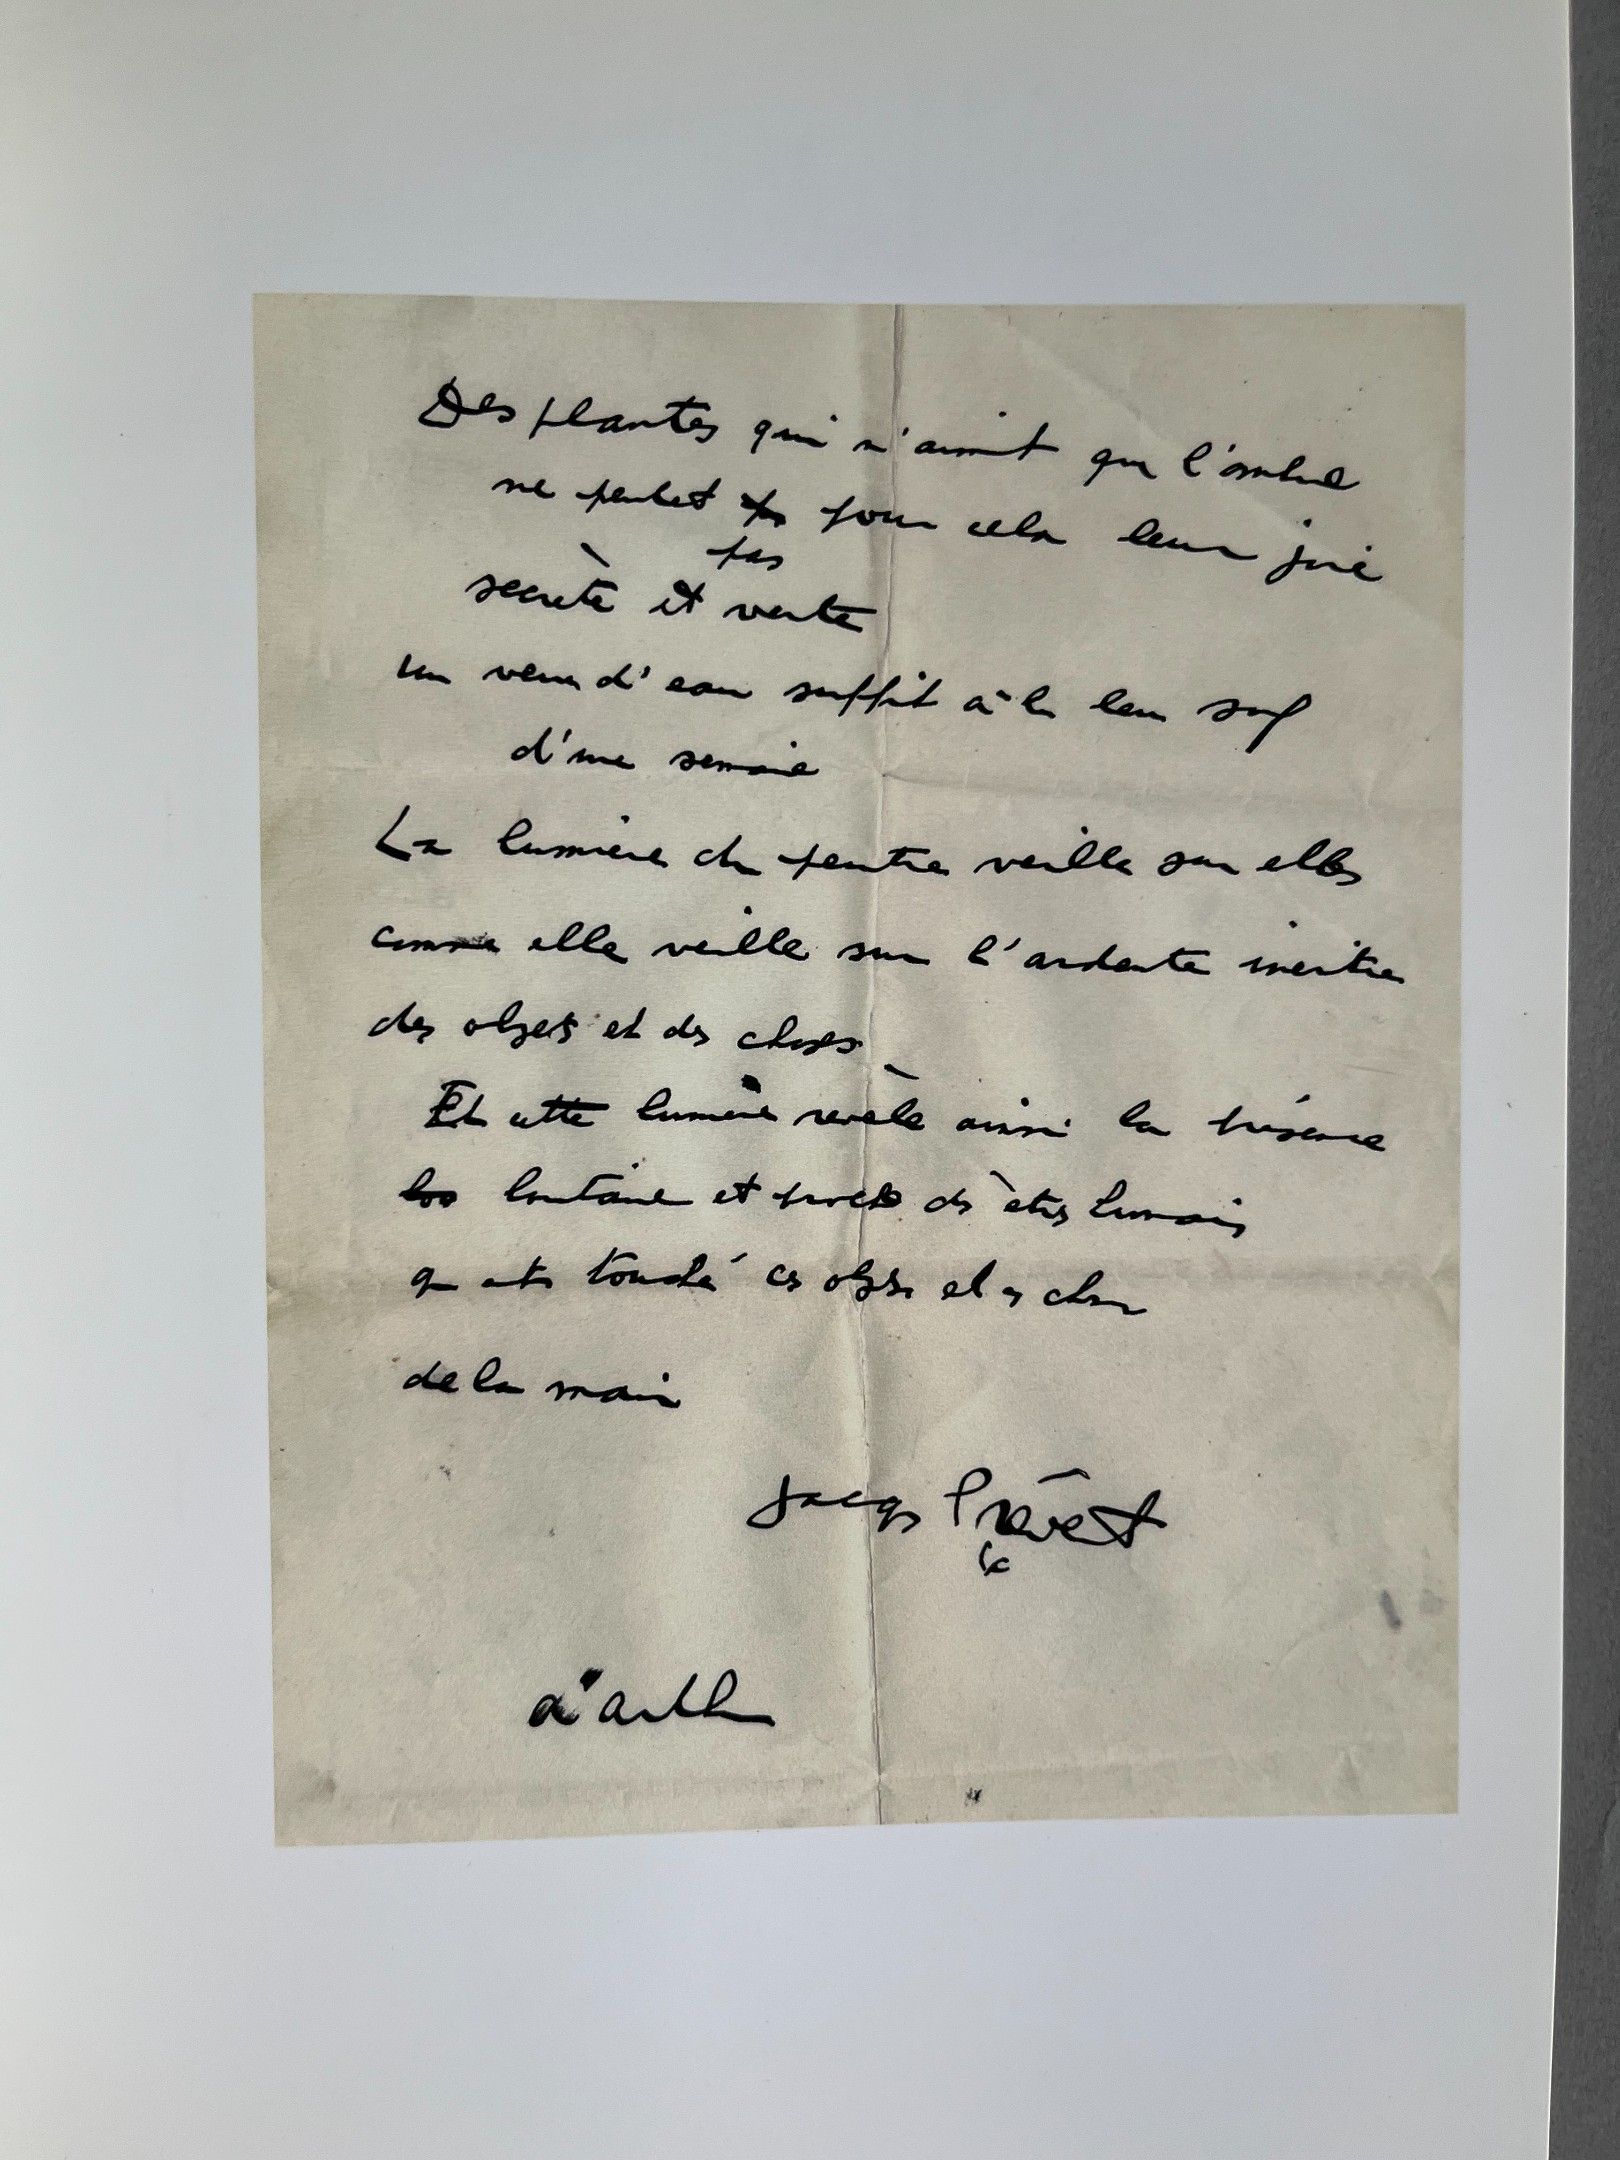 Des plantes qui n'aiment que l'ombre
ne perdent pas pour cela leur joie
pas
secrète et verte
un verre d'eau suffit à la leur soif
d'une semaine
La lumière du peintre veille sur elles
comme elle veille sur l'ardente inertie
des objets et des choses
Et cette lumière revèle ainsi la présence
lointaine et proche des êtres humains
qui ont touché ces objets et ces choses
de la main
Jacques Prévert
à